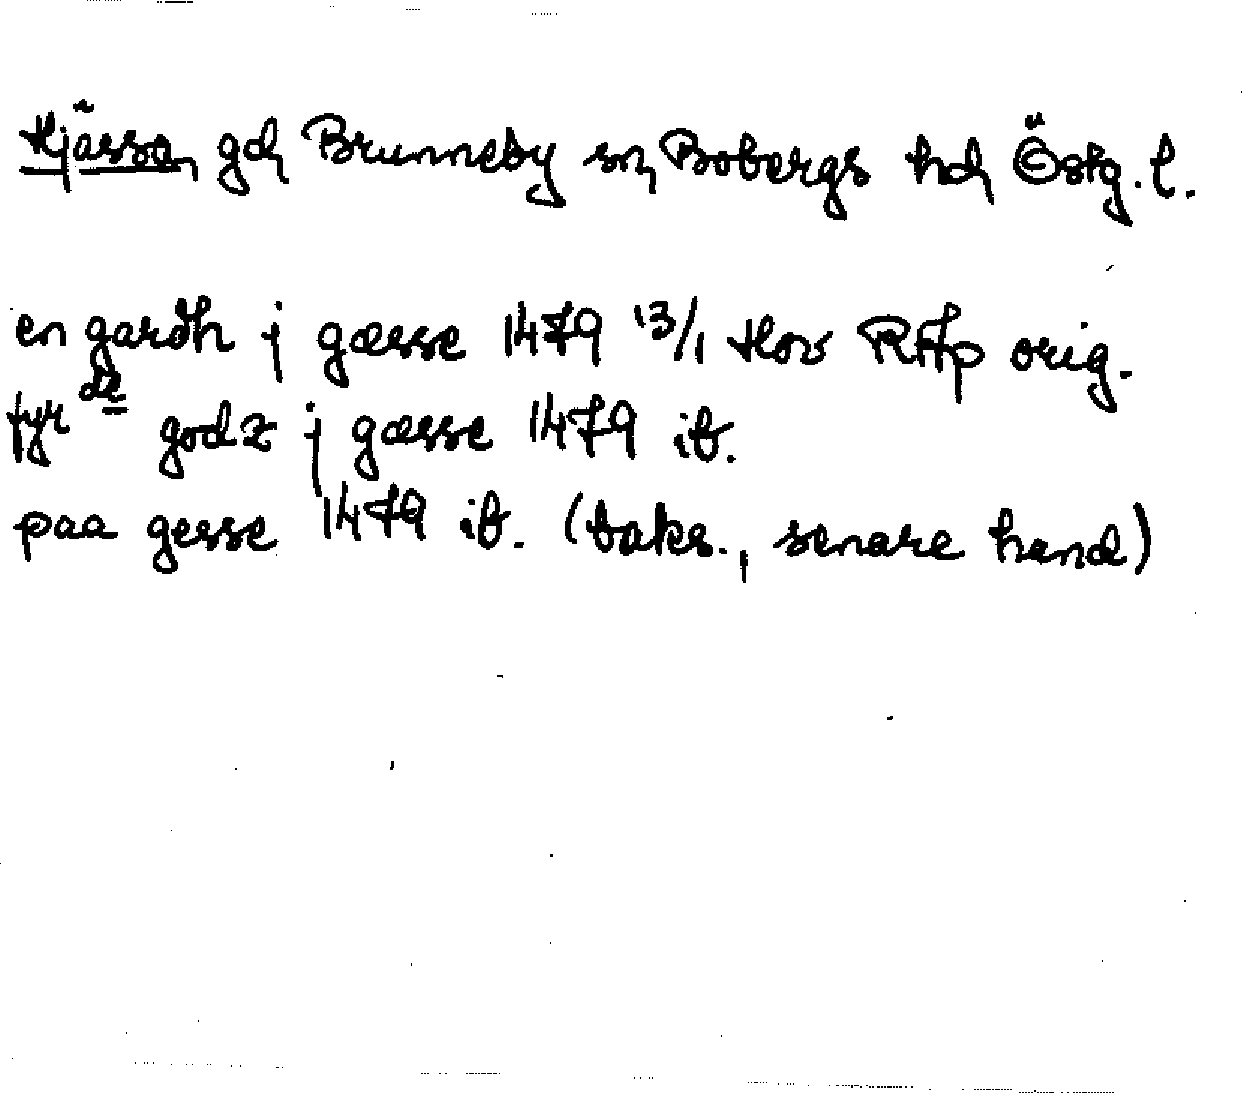 Hjässa gd Brunneby sn Bobergs hd Östg.l.
en gardh j gæsse 1479 13/1 Hov RAp orig.
fyr de godz j gæsse 1479 ib.
paa gesse 1479 ib. (baks., senare hand)